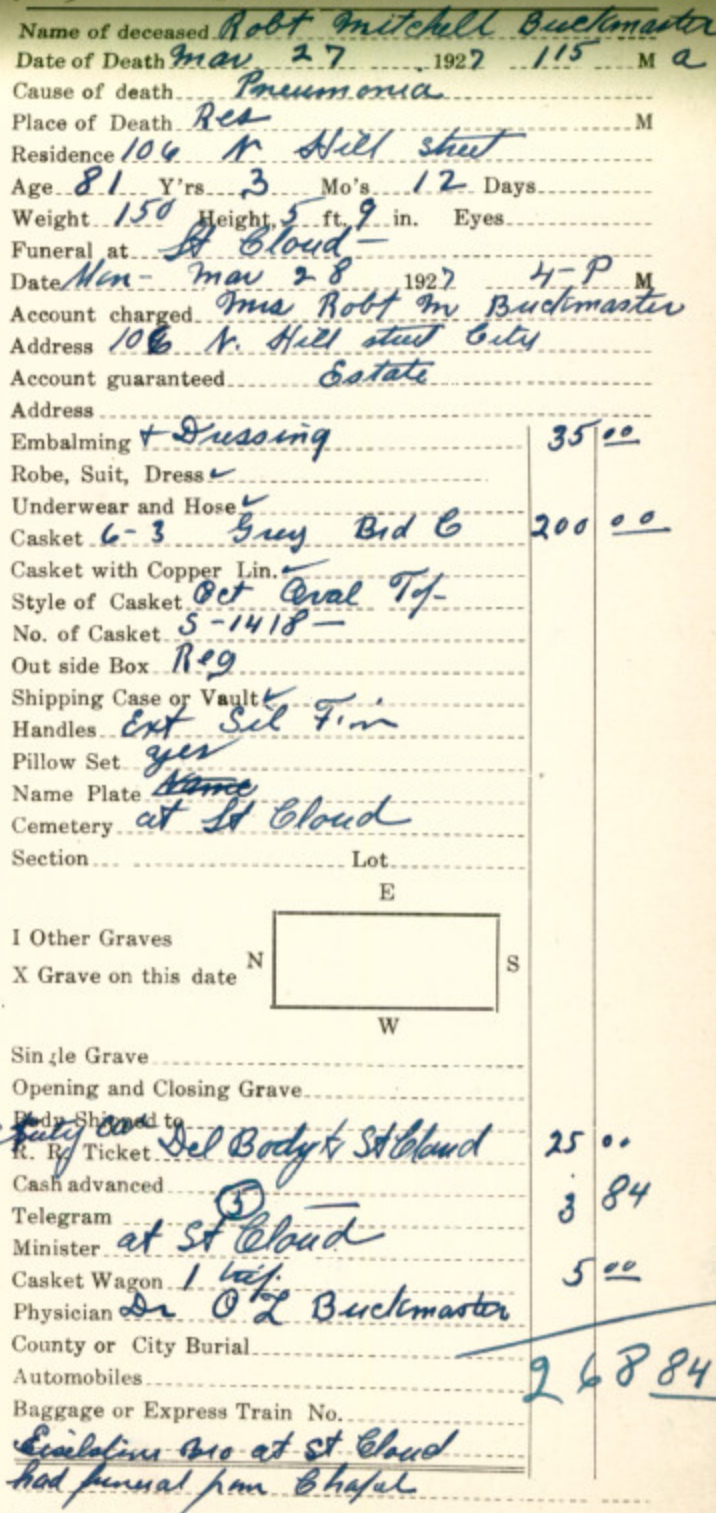 Name of deceased Robt Mitchell Buckmaster
Date of Death Mar 27 1927 115 M a
Cause of death Pneumonia
Place of Death Res M
Residence 106 N Hill street
Age 81 Y'rs 3 Mo's 12 Days
Weight 150 Height 5 ft. 9 in. Eyes
Funeral at St Cloud -
Date Mon- Mar 28 1927 4-P M
Account charged Mrs Robt M Buckmaster
Address 106 N. Hill street City
Account guaranteed Estate
Address
Embalming + Dressing 35 00
Robe, Suit, Dress ✓
Underwear and Hose ✓
Casket 6-3 Grey Brd C 200 00
Casket with Copper Lin. ✓
Style of Casket Oct Oval Top
No. of Casket S-1418-
Out side Box Reg
Shipping Case or Vault ✓
Handles Ext Sil Fin
Pillow Set yes
Name Plate
Cemetery at St Cloud
Section Lot
E
I Other Graves
X Grave on this date N S
W
Single Grave
Opening and Closing Grave
Body Shipped to
R. R. Ticket Del Body to St Cloud 25 00
Cash advanced
Telegram 5 3 84
Minister at St Cloud
Casket Wagon 1 5 00
Physician Dr O L Buckmaster
County or City Burial
Automobiles 268 84
Baggage or Express Train No.
Bro at St Cloud
had funeral from Chapel